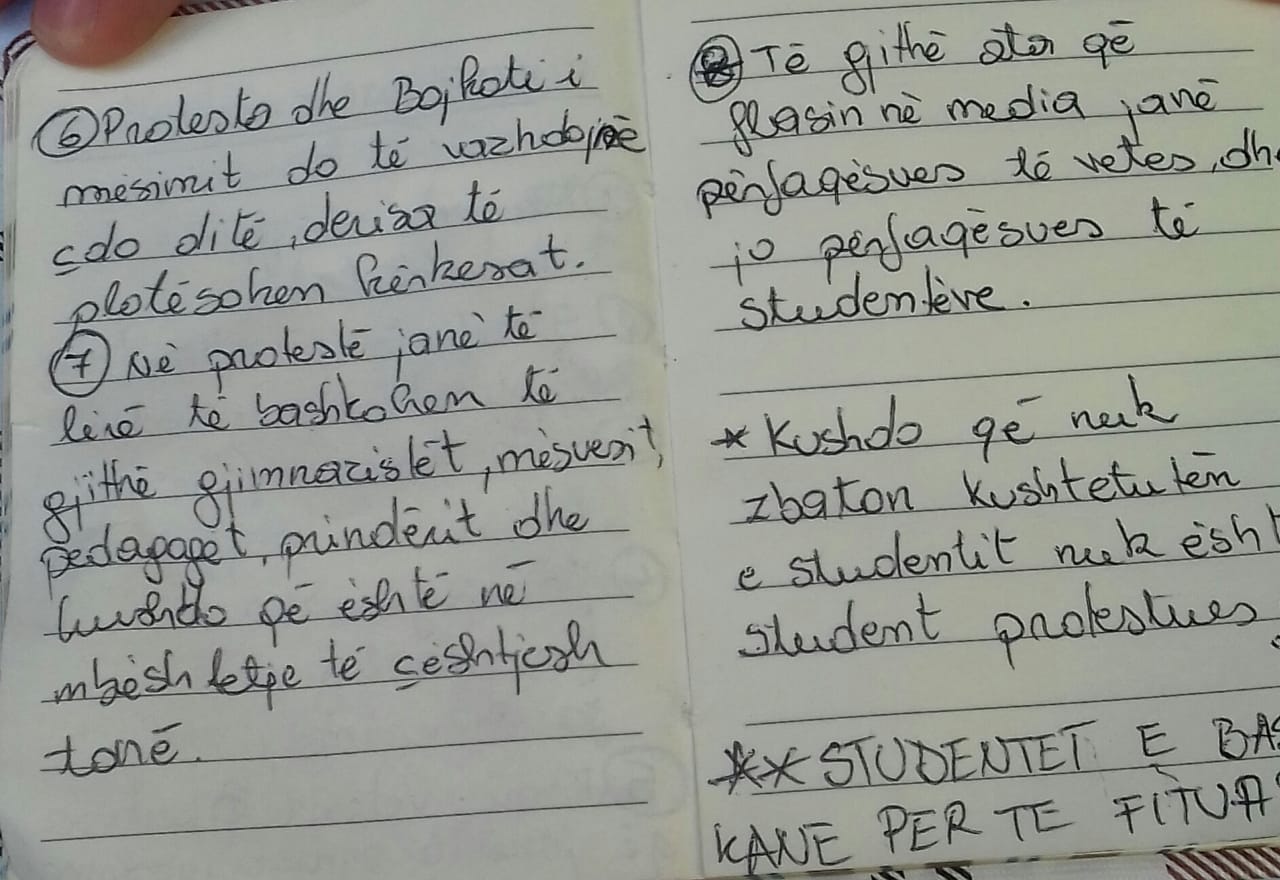 6 Protesta dhe Bojkoti i
mësimit do të vazhdojnë
çdo ditë, derisa të
plotësohen kërkesat.
7 Në protestë janë të
lirë të bashkohem të
gjithë gjimnazistët, mësuesit,
pedagogët, prindërit dhe
kushdo që është në
mbështetje të çështjesh
tonë.
8 Të gjithë ata që
flasin në media janë
përfaqësues të vetes, dh
jo përfaqësues të
studentëve.
* Kushdo që nuk
zbaton kushtetutën
e studentit nuk ësht
student protestues
** STUDENTET E BAS
KANE PER TE FITUA